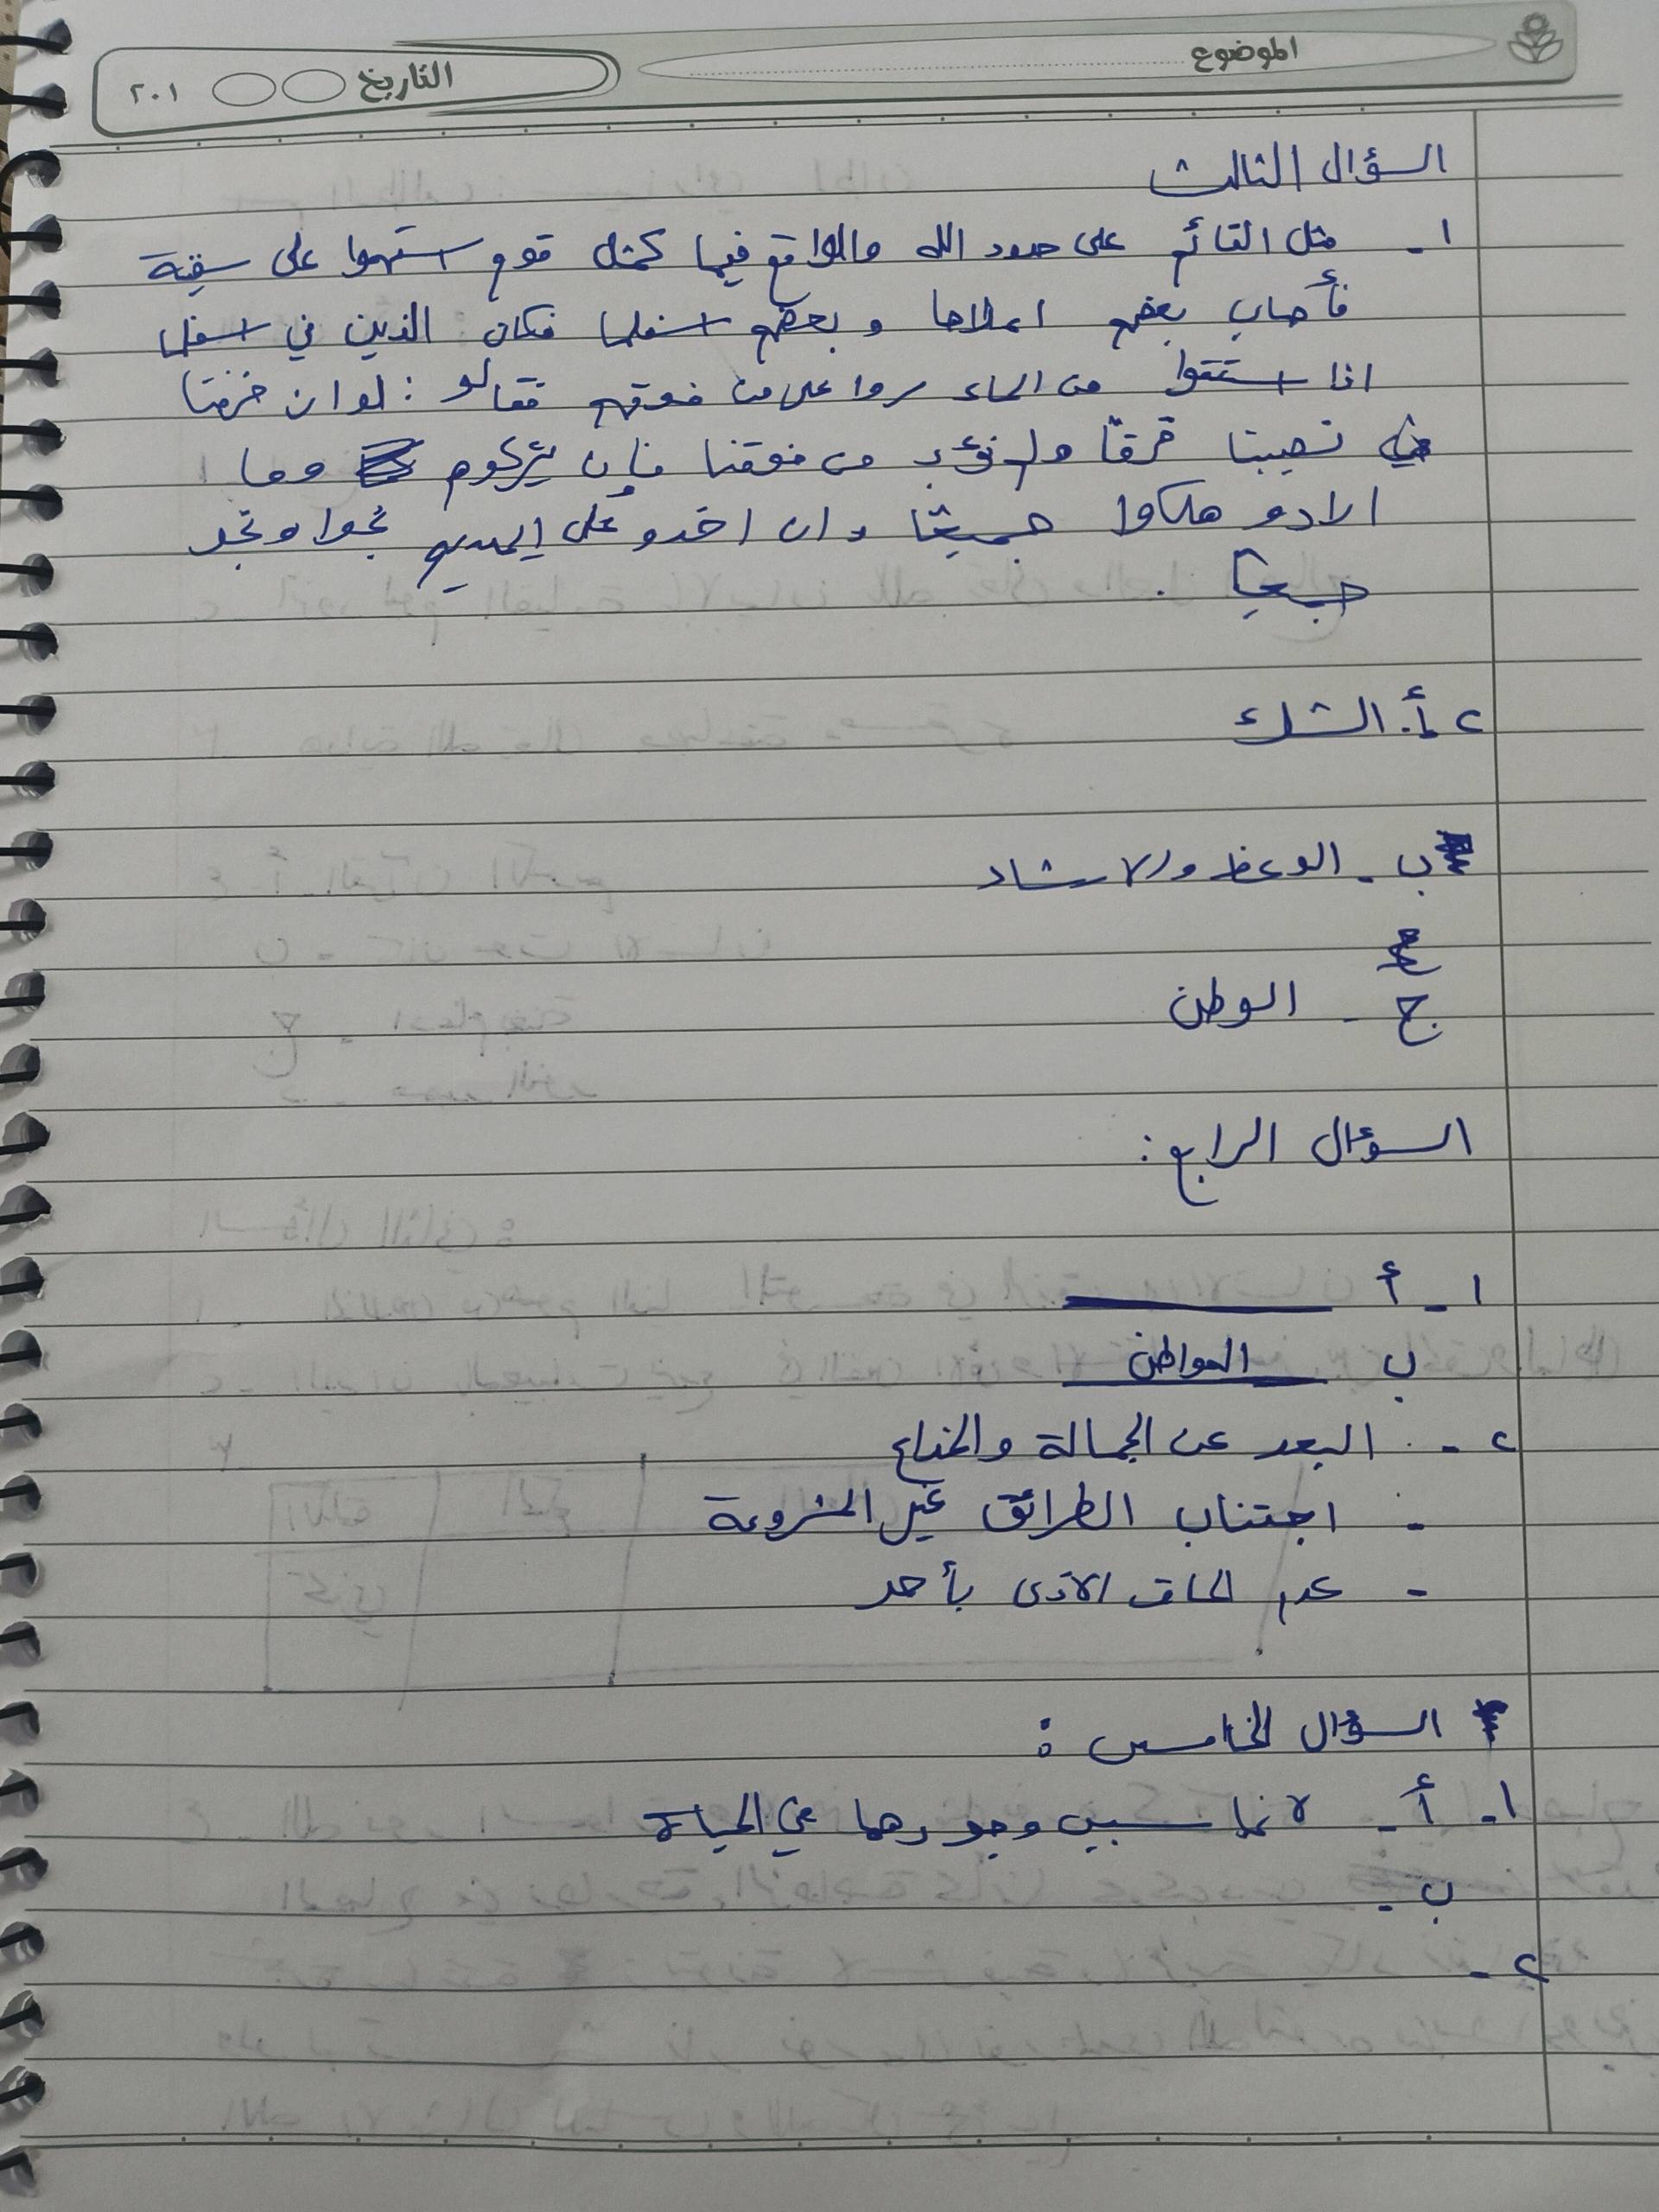 الموضوع
التاريخ ٢٠١
السؤال الثالث
١- مثل القائم على حدود الله والواقع فيها كمثل قوم استهموا على سفينة
فأصاب بعضهم اعلاها و بعضهم اسفلها فكان الذين في اسفلها
اذا استقوا من الماء مروا على من فوقهم فقالو : لو ان خرقنا
في نصيبنا خرقًا ولم نؤذ من فوقنا فإن يتركوم وما
ارادو هلكوا جميعًا وان اخدو على ايديهم نجوا ونجو
جميعًا .
٢ أ. الشرك
ب - الوعظ والارشاد
ج - الوطن
السؤال الرابع :
١ - أ
ب المواطن
٢ - البعد عن الجهالة والخداع
- اجتناب الطرائق غير المشروعة
- عدم الحاق الاذى بأحد
السؤال الخامس :
١ - أ - لانهما سببين وجودهما في الحياة
ب -
٢ -